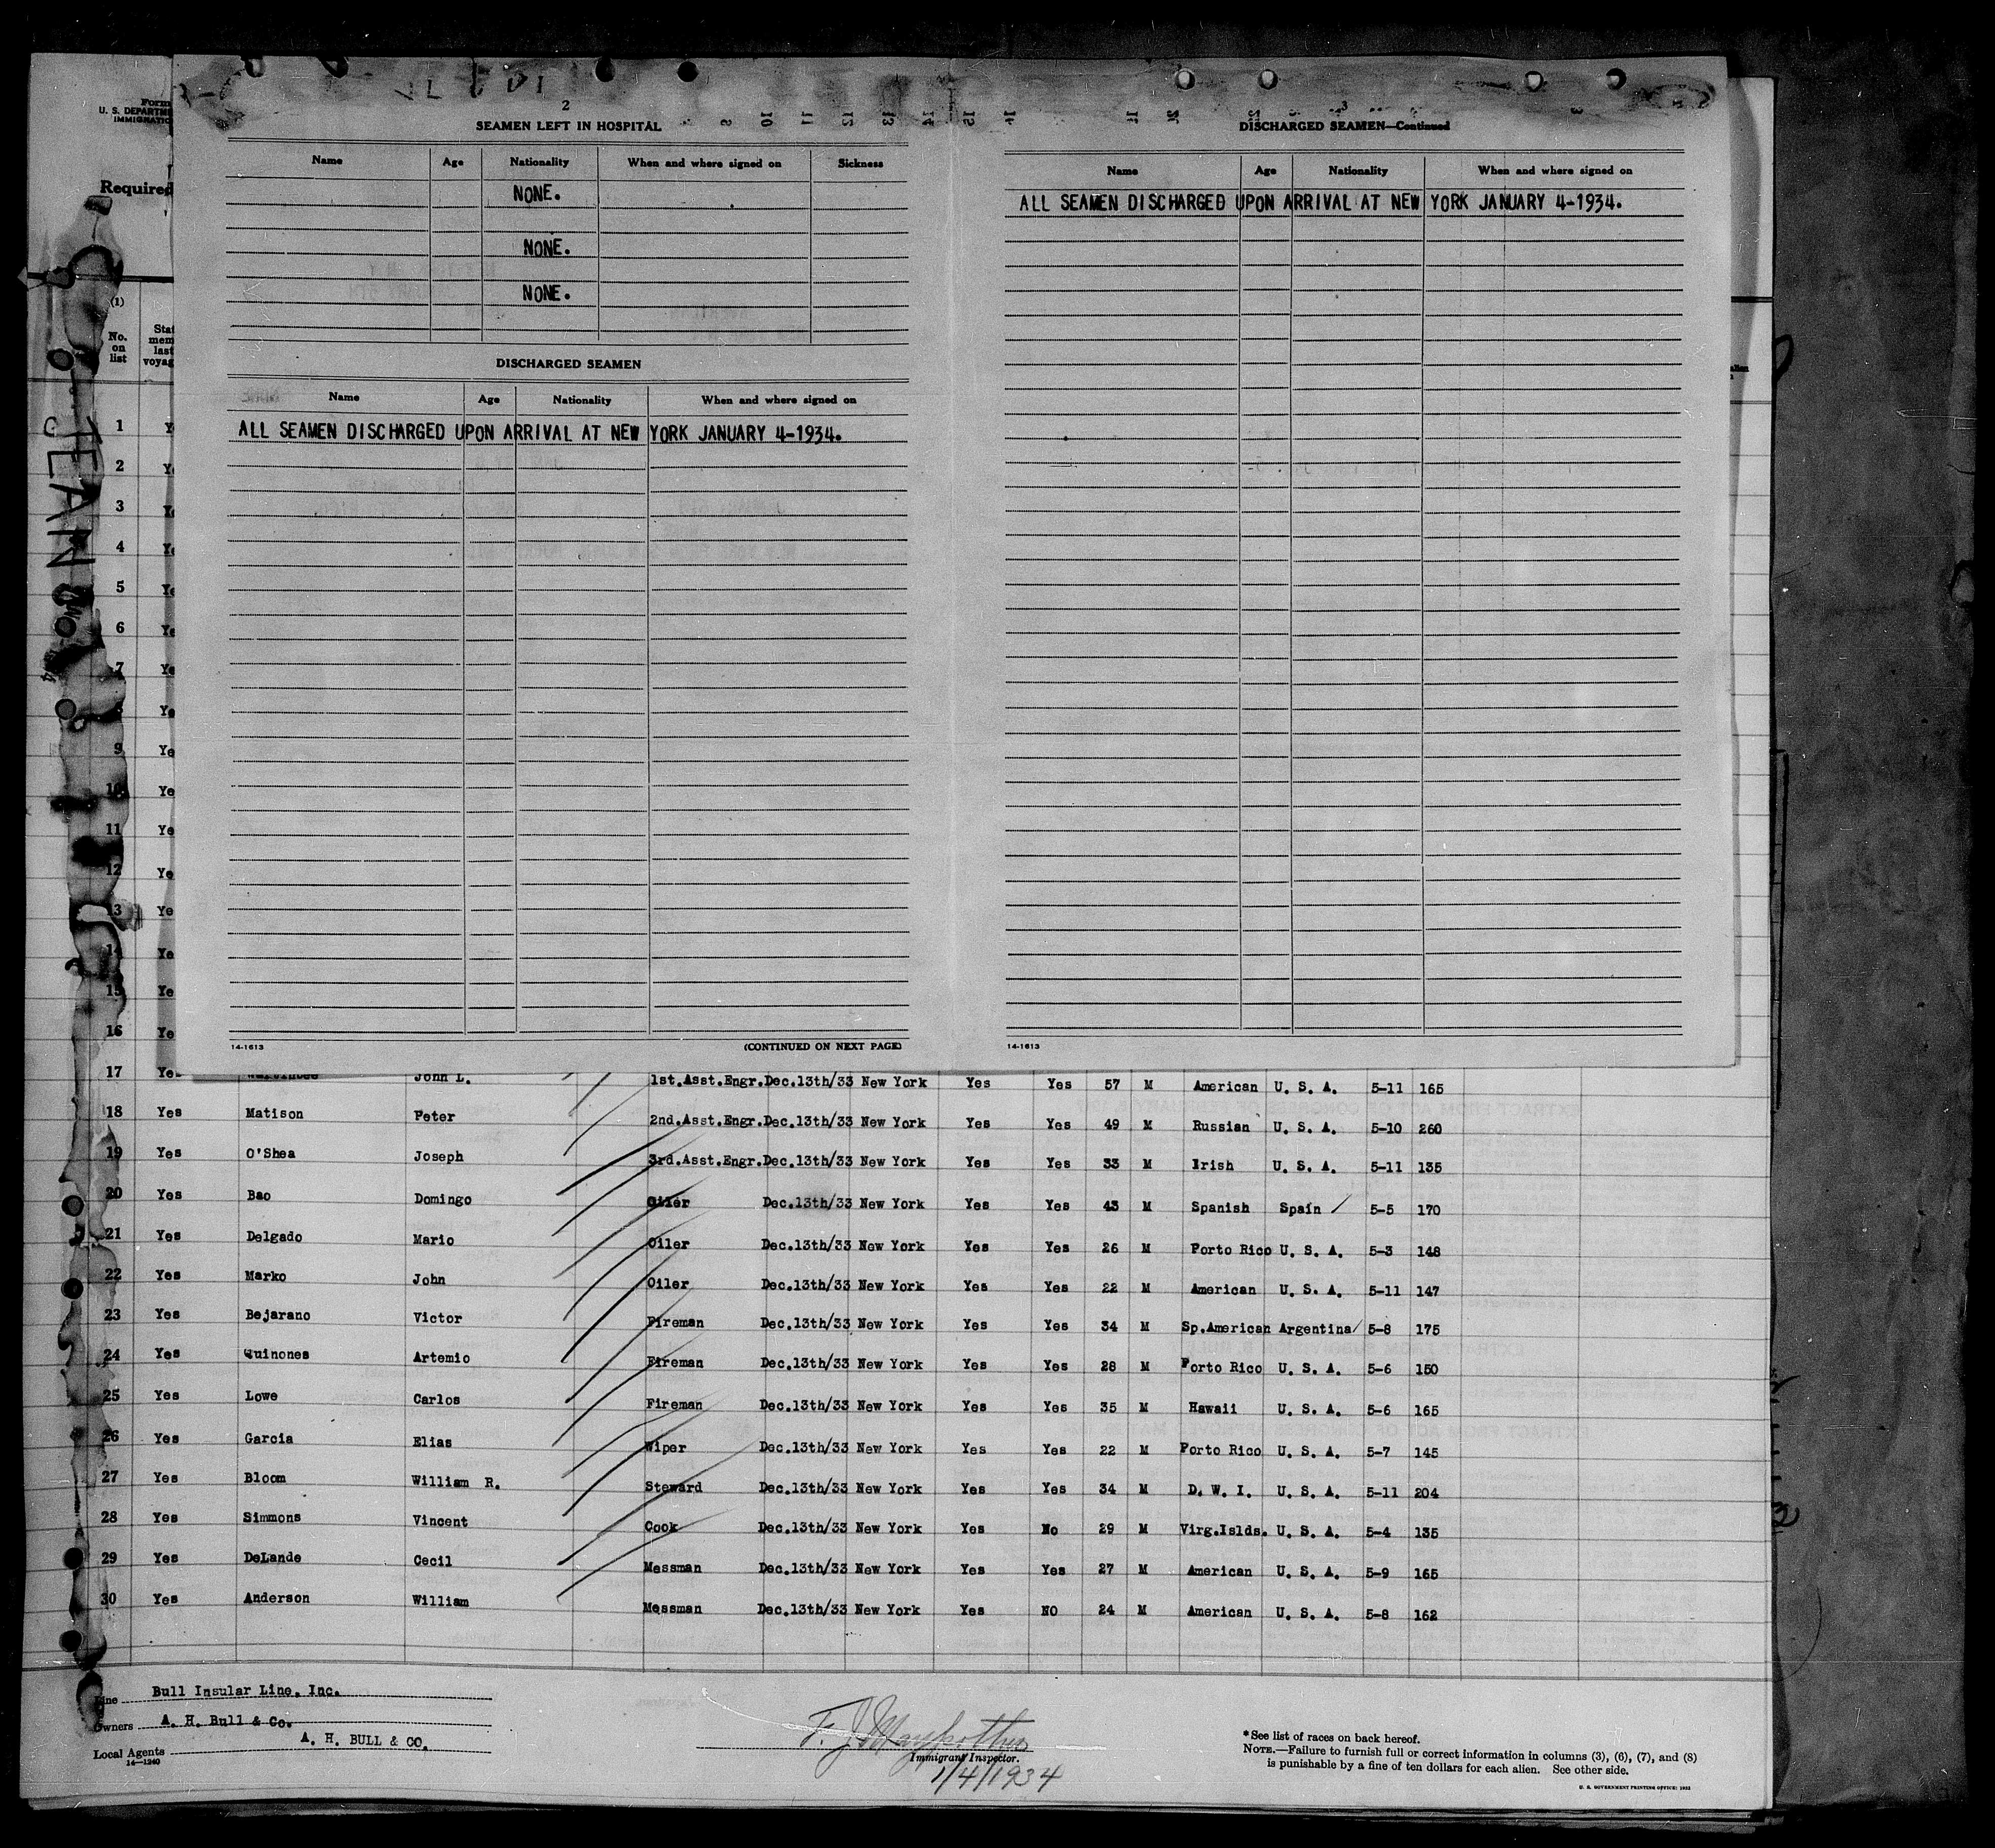 Form
U. S. DEPARTME
IMMIGRATIO
Required
(1)
No.
on
list
Sta
mem
last
voyag
JEAN
2
SEAMEN LEFT IN HOSPITAL
Name Age Nationality When and where signed on Sickness
NONE.
NONE.
NONE.
DISCHARGED SEAMEN
Name Age Nationality When and where signed on
ALL SEAMEN DISCHARGED UPON ARRIVAL AT NEW YORK JANUARY 4-1934.
14-1613
(CONTINUED ON NEXT PAGE)
3
DISCHARGED SEAMEN—Continued
Name Age Nationality When and where signed on
ALL SEAMEN DISCHARGED UPON ARRIVAL AT NEW YORK JANUARY 4-1934.
14-1613
1 Y
2 Ye
3 Ye
4 Ye
5 Ye
6 Ye
7 Ye
8 Ye
9 Ye
10 Ye
11 Ye
12 Ye
13 Ye
14 Ye
15 Ye
16 Ye
17 Yes John L. 1st.Asst.Engr. Dec.13th/33 New York Yes Yes 57 M American U. S. A. 5-11 165
18 Yes Matison Peter 2nd.Asst.Engr. Dec.13th/33 New York Yes Yes 49 M Russian U. S. A. 5-10 260
19 Yes O'Shea Joseph 3rd.Asst.Engr. Dec.13th/33 New York Yes Yes 33 M Irish U. S. A. 5-11 135
20 Yes Bao Domingo Oiler Dec.13th/33 New York Yes Yes 43 M Spanish Spain 5-5 170
21 Yes Delgado Mario Oiler Dec.13th/33 New York Yes Yes 26 M Porto Rico U. S. A. 5-3 148
22 Yes Marko John Oiler Dec.13th/33 New York Yes Yes 22 M American U. S. A. 5-11 147
23 Yes Bejarano Victor Fireman Dec.13th/33 New York Yes Yes 34 M Sp.American Argentina 5-8 175
24 Yes Quinones Artemio Fireman Dec.13th/33 New York Yes Yes 28 M Porto Rico U. S. A. 5-6 150
25 Yes Lowe Carlos Fireman Dec.13th/33 New York Yes Yes 35 M Hawaii U. S. A. 5-6 165
26 Yes Garcia Elias Wiper Dec.13th/33 New York Yes Yes 22 M Porto Rico U. S. A. 5-7 145
27 Yes Bloom William R. Steward Dec.13th/33 New York Yes Yes 34 M D. W. I. U. S. A. 5-11 204
28 Yes Simmons Vincent Cook Dec.13th/33 New York Yes No 29 M Virg.Islds. U. S. A. 5-4 135
29 Yes DeLande Cecil Messman Dec.13th/33 New York Yes Yes 27 M American U. S. A. 5-9 165
30 Yes Anderson William Messman Dec.13th/33 New York Yes NO 24 M American U. S. A. 5-8 162
Line Bull Insular Line, Inc.
Owners A. H. Bull & Co.
Local Agents A. H. BULL & CO.
14—1240
F. J.
Immigrant Inspector.
1/4/1934
*See list of races on back hereof.
NOTE.—Failure to furnish full or correct information in columns (3), (6), (7), and (8)
is punishable by a fine of ten dollars for each alien. See other side.
U. S. GOVERNMENT PRINTING OFFICE: 1932